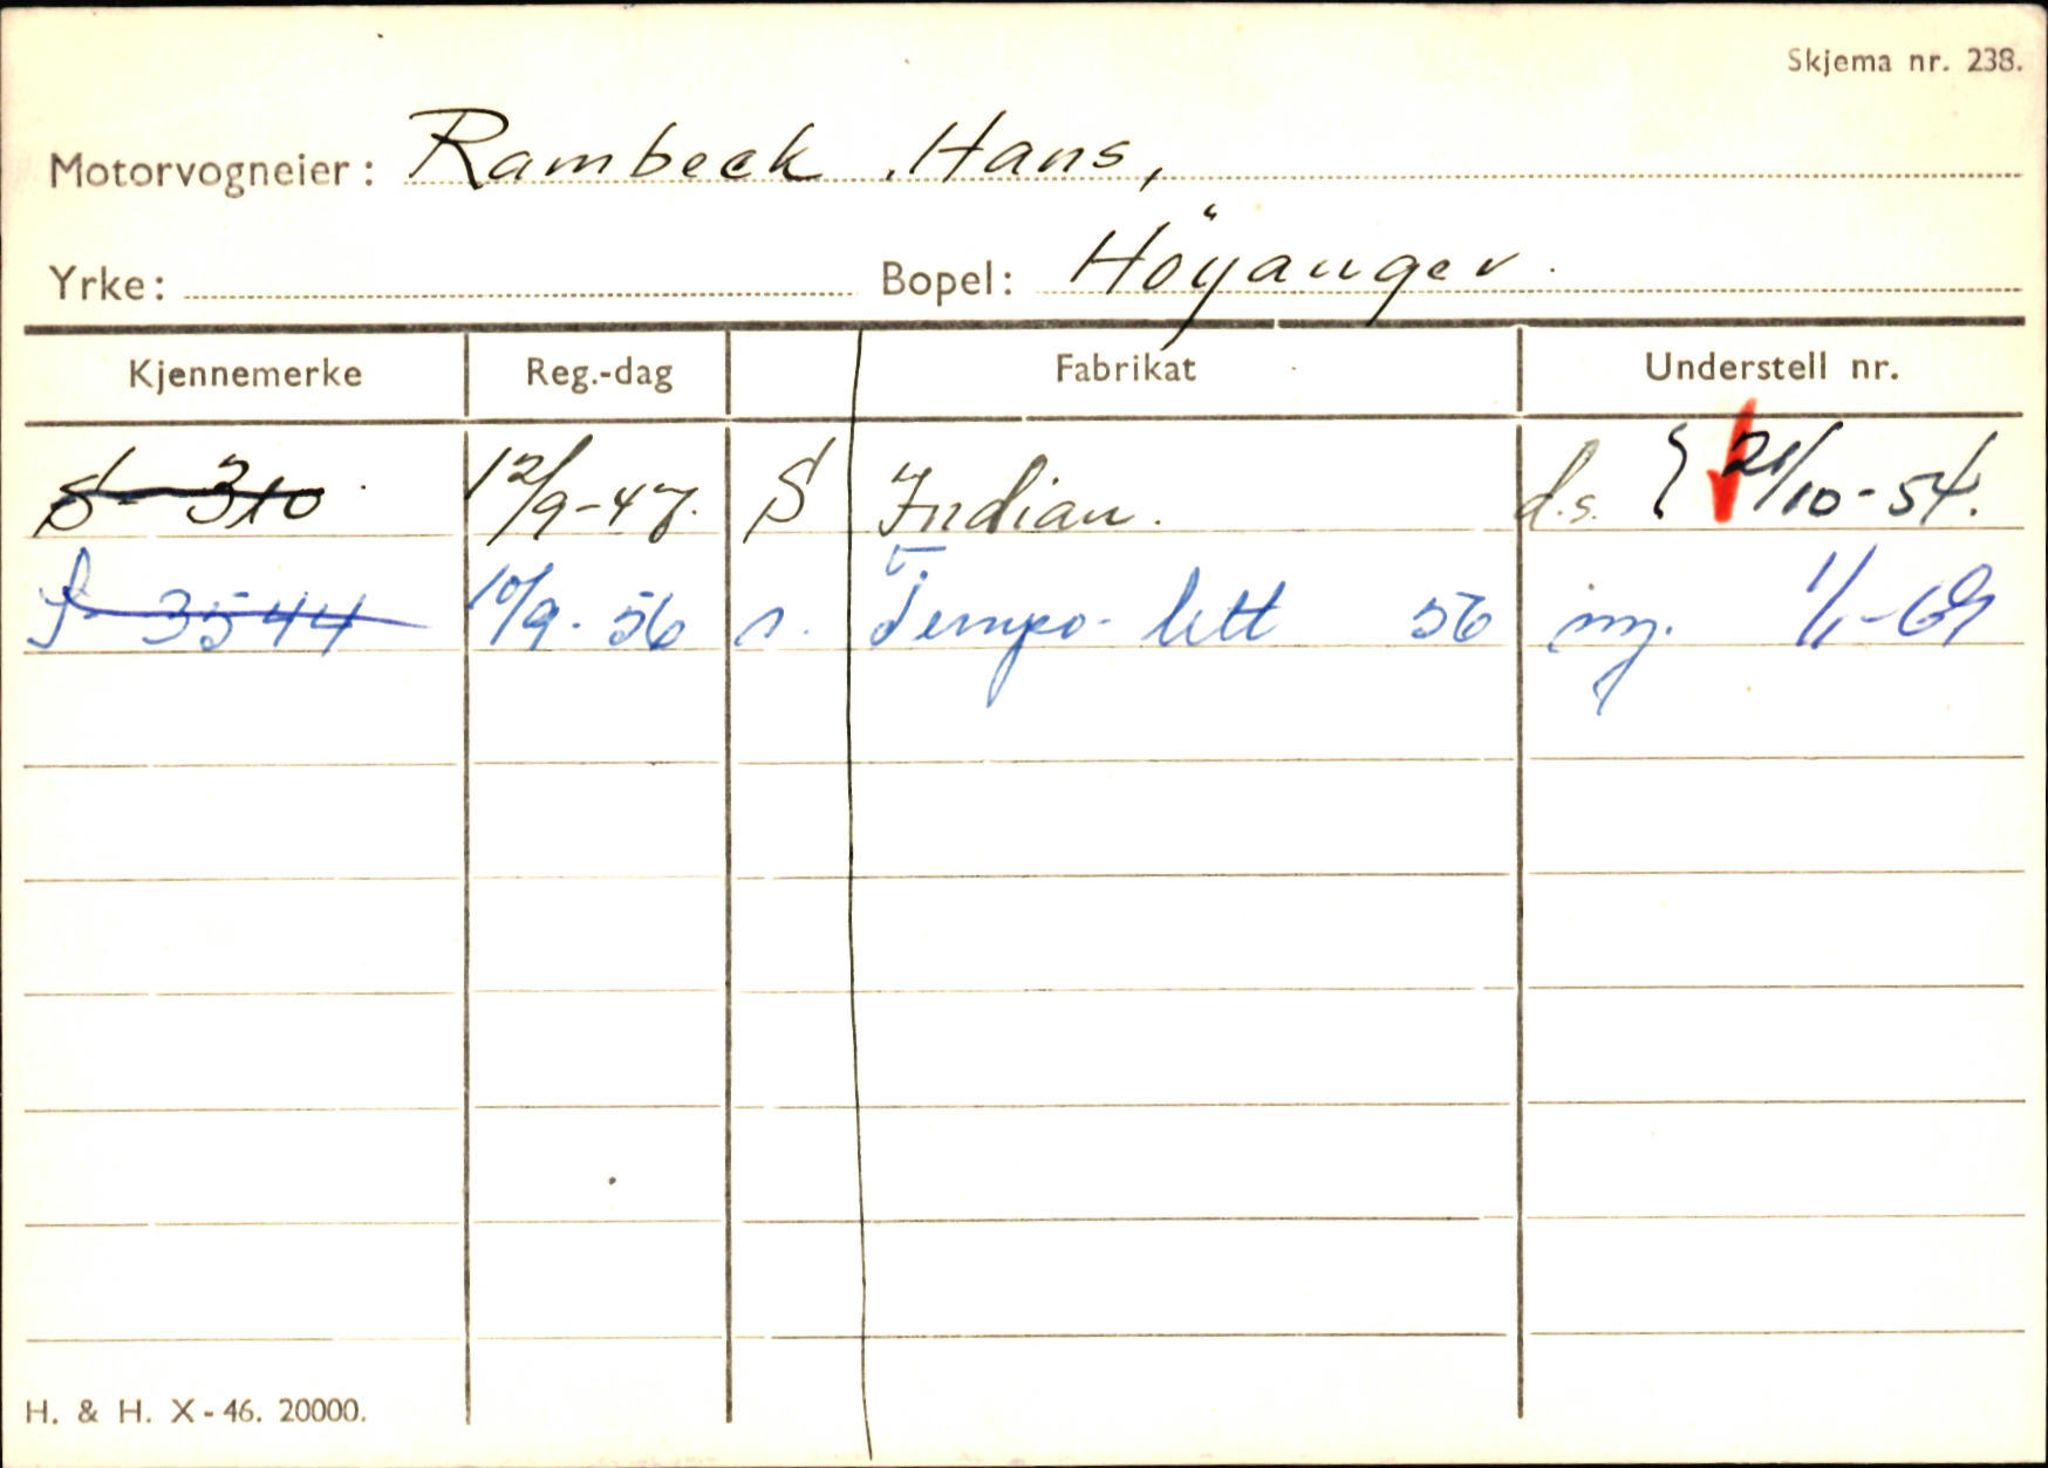 Skjema nr. 238.
Motorvogneier: Rambeck, Hans,
Yrke: Bopel: Höyanger.
Kjennemerke Reg.-dag Fabrikat Understell nr.
S- 310 12/9-47. S Indian. d.s. } 21/10-54.
S- 3544 10/9-56 s. Tempo-lett 56 1/1-69
H. & H. X-46. 20000.